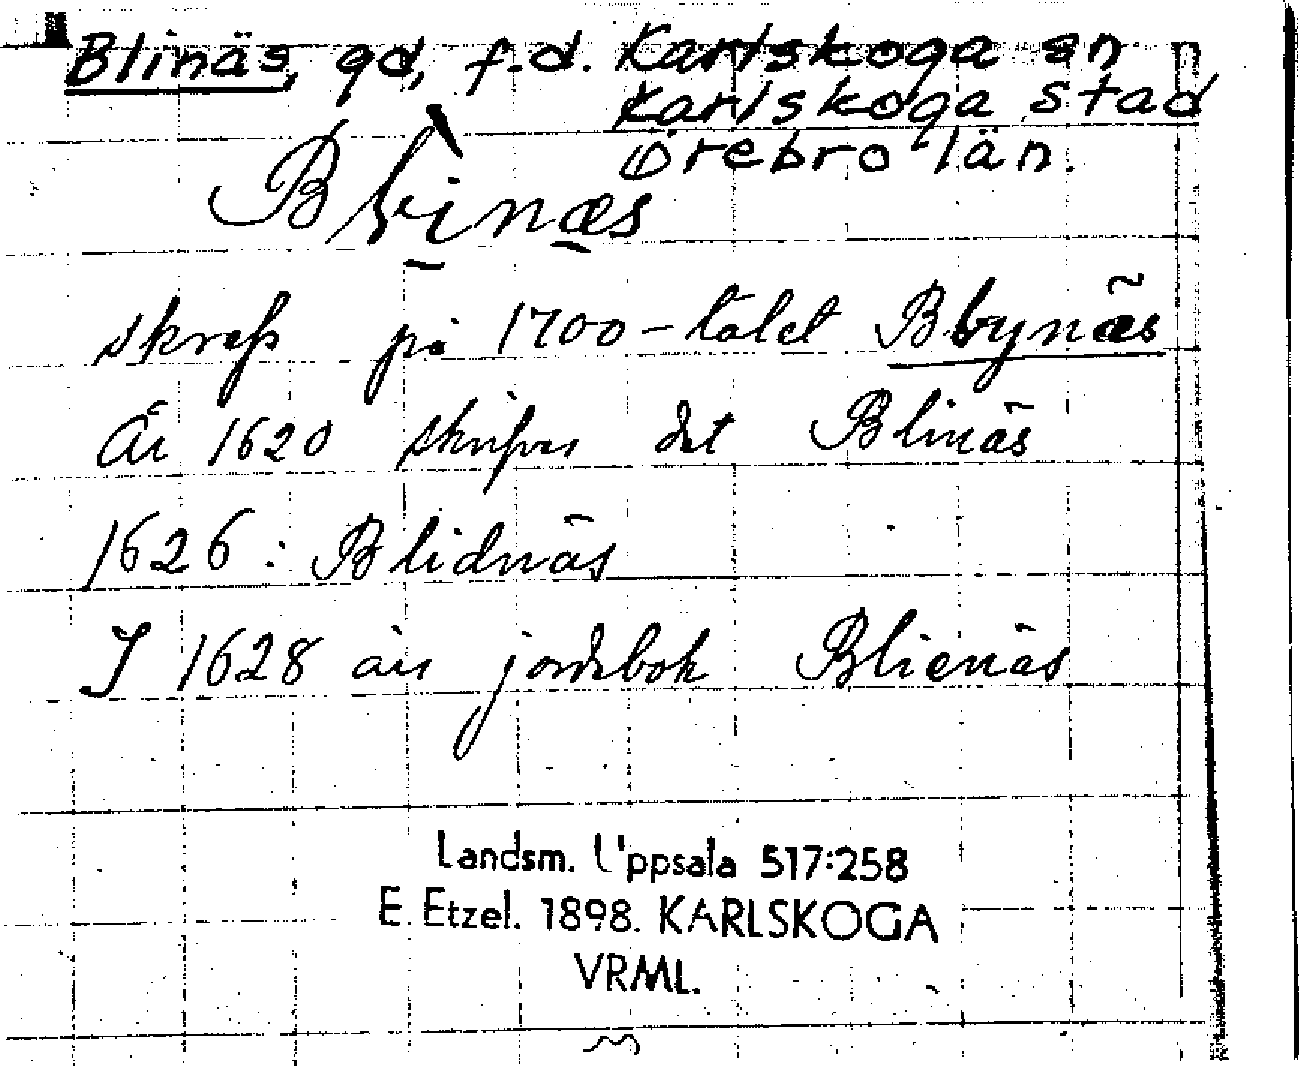 Blinäs, gd, f.d. Karlskoga sn
Karlskoga stad
Örebro län.
Blinæs
skrefs på 1700-talet Blynæs
År 1620 skrifves det Blinäs
1626: Blidnäs
I 1628 års jordebok Blienäs
Landsm. Uppsala 517:258
E. Etzel. 1898. KARLSKOGA
VRML.